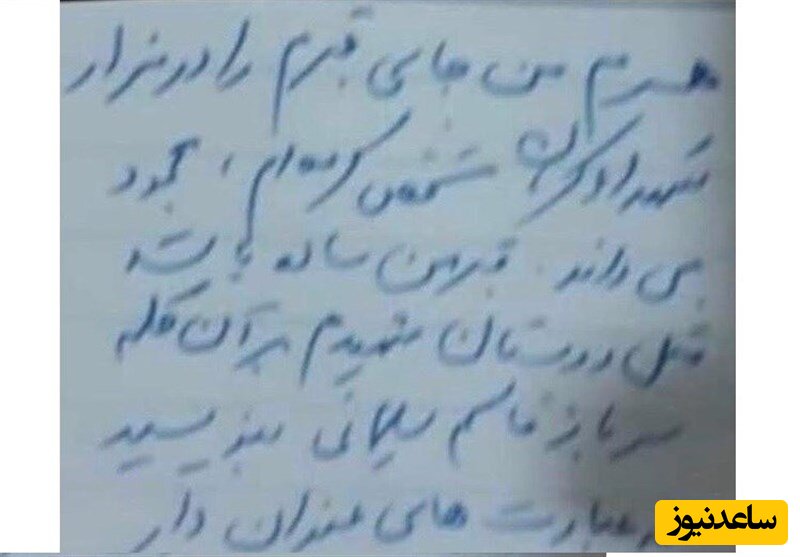 همسرم من جای قبرم را در مزار
شهدا کرمان مشخص کرده‌ام، محمود
می داند. قبر من ساده باشد
مثل دوستان شهیدم بر آن کلمه
سرباز قاسم سلیمانی بنویسید
عبارت های عنوان دار
ساعدنیوز